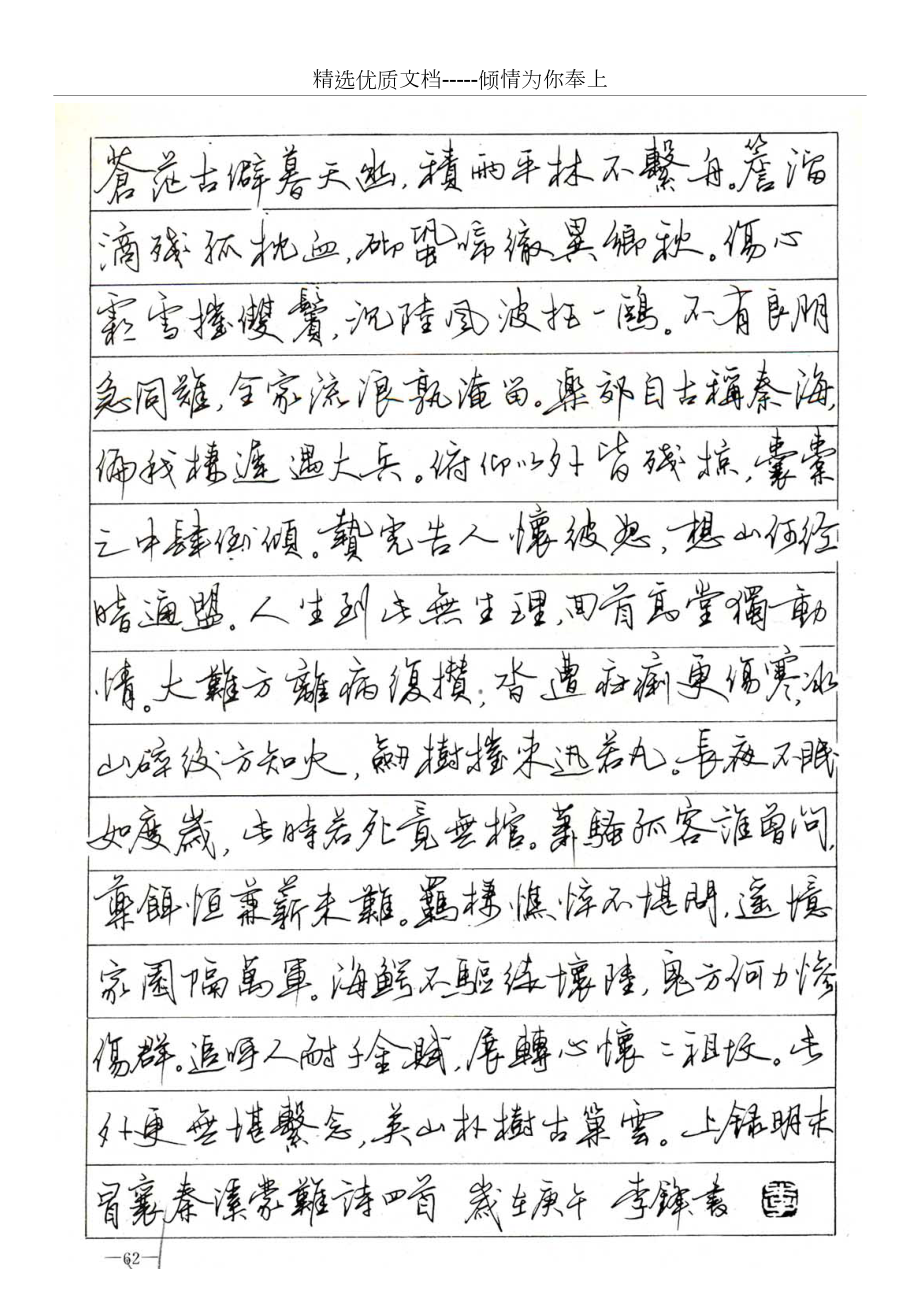 精选优质文档-----倾情为你奉上
蒼茫古僻暮天幽，積雨平林不繫舟。簷溜
滴残孤枕血，砌蛩啼徹異鄉秋。傷心
霜雪摧雙鬢，沉陸風波托一鷗。不有良朋
急同難，全家流浪孰淹留。樂郊自古稱秦海，
偏我棲遲遇大兵。俯仰以外皆殘掠，囊橐
之中肆倒傾。贄完告人懷彼怒，想山何经
暗適盟。人生到此無生理，回首高堂獨動
情。大難方離病復攢，沓遭疟痢更傷寒，冰
山碎後方知火，劒樹摧来迅若丸。長夜不眠
如度歲，此時若死竟無棺。蕭騷孤客誰曾問，
藥餌恒兼薪未難。羈棲憔悴不堪問，遥境
家園隔萬軍。海鰐不驅後壞陸，鬼方何力慘
傷群。追呼人耐子金賦，展轉心懷二祖坟。此
外更無堪繫念，英山朴樹古巢雲。上録明末
冒襄秦溪蒙難詩四首 歲在庚午 李鋒書
—62—